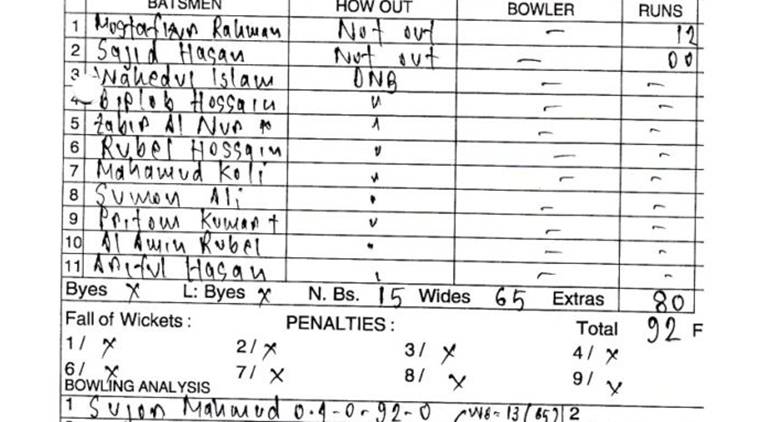 BATSMEN HOW OUT BOWLER RUNS
1 Mostafizur Rahman Not out — 12
2 Sajid Hasan Not out — 00
3 Wahedul Islam DNB — –
4 Biplob Hossain " — –
5 Zabir Al Nur * " — –
6 Rubel Hossain " — –
7 Mahamud Koli " — –
8 Sumon Ali " — –
9 Pritom Kumar + " — –
10 Al Amin Rubel " — –
11 Ariful Hasan " — –
Byes x L: Byes x N. Bs. 15 Wides 65 Extras 80
Fall of Wickets : PENALTIES : Total 92 F
1/ x 2/ x 3/ x 4/ x
6/ x 7/ x 8/ x 9/ x
BOWLING ANALYSIS
1 Sujon Mahmud 0.4-0-92-0